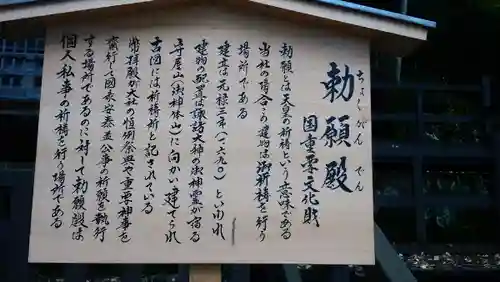 勅願殿
ちょくがんでん
国重要文化財
勅願とは天皇の祈祷という意味である
当社の場合、この建物は御祈祷を行う
場所である
建立は元禄三年(一六九〇)といわれ
建物の配置は諏訪大神の御神霊が宿る
守屋山(御神体山)に向かい建てられ
古図には祈祷所と記されている
幣拝殿が大社の恒例祭典や重要神事を
斎行し国家安泰並公事の祈願を執行
する場所であるのに対して勅願殿は
個人私事の祈祷を行う場所である